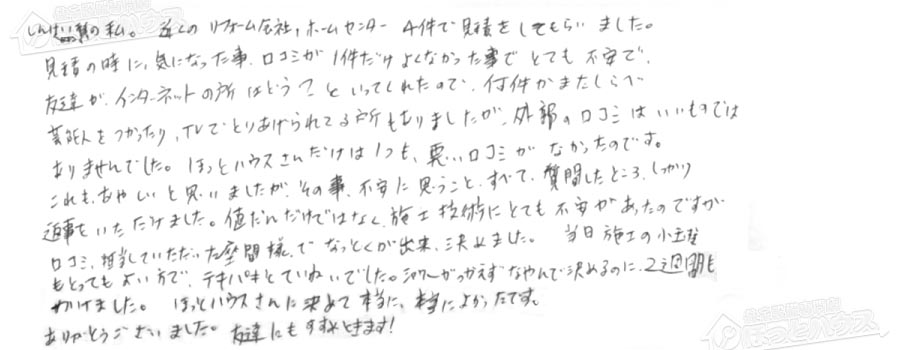 しんけい質の私。近くのリフォーム会社、ホームセンター4件で見積をしてもらいました。
見積の時に、気になった事、口コミが1件だけよくなかった事でとても不安で、
友達が、インターネットの所はどう?といってくれたので、何件かまたしらべ
芸能人をつかったり、TVでとりあげられてる所もありましたが、外部の口コミはいいものでは
ありませんでした。ほっとハウスさんだけは1つも、悪い口コミがなかったのです。
これも、あやしいと思いましたが、その事、不安に思うこと、すべて、質問したところ、しっかり
返事をいただけました。値だんだけではなく、施工技術にとても不安があったのですが
口コミ、担当していただいた座間様でなっとくが出来、決めました。当日施工の小玉様
もとってもよい方で、テキパキとていねいでした。がつかえずなやんで決めるのに、2週間も
かけました。ほっとハウスさんに決めて本当に、本当によかったです。
ありがとうございました。友達にもすすめときます!
ほっとハウス